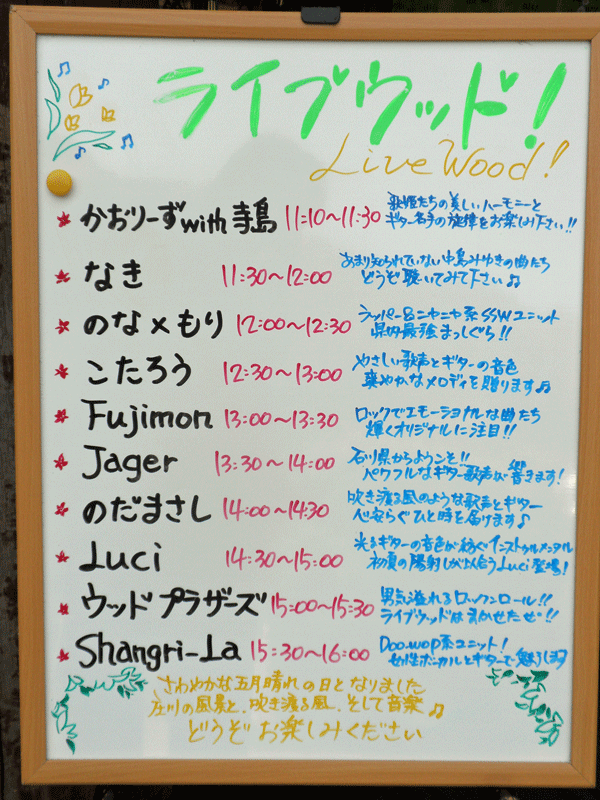 ライブウッド!
Live Wood!
かおりーずwith寺島 11:10〜11:30 歌姫たちの美しいハーモニーと
ギター名手の旋律をお楽し下さい!!
なき 11:30〜12:00 あまり知られていない中島みゆきの曲たち
どうぞ聴いてみて下さい♫
のな×もり 12:00〜12:30 ラッパー&ニャニャ系SSWユニット
県内最強まっしぐら!!
こたろう 12:30〜13:00 やさしい歌声とギターの音色
爽やかなメロディを贈ります♫
Fujimon 13:00〜13:30 ロックでエモーショナルな曲たち
輝くオリジナルに注目!!
Jager 13:30〜14:00 石川県からようこそ!!
パワフルなギター歌声が響きます!
のだまさし 14:00〜14:30 吹き渡る風のような歌声とギター
心安らぐひと時を届けます♪
Luci 14:30〜15:00 光るギターの音色が紡ぐインストゥルメンタル
初夏の陽射しが似合うLuci登場!
ウッドブラザーズ 15:00〜15:30 男気溢れるロックンロール!!
ライブウッドは沸かせたぜ!!
Shangri-La 15:30〜16:00 Doo-wop系ユニット!
女性ボーカルとギターで魅了します
さわやかな五月晴れの日となりました
庄川の風景と、吹き渡る風、そして音楽♫
どうぞお楽しみください